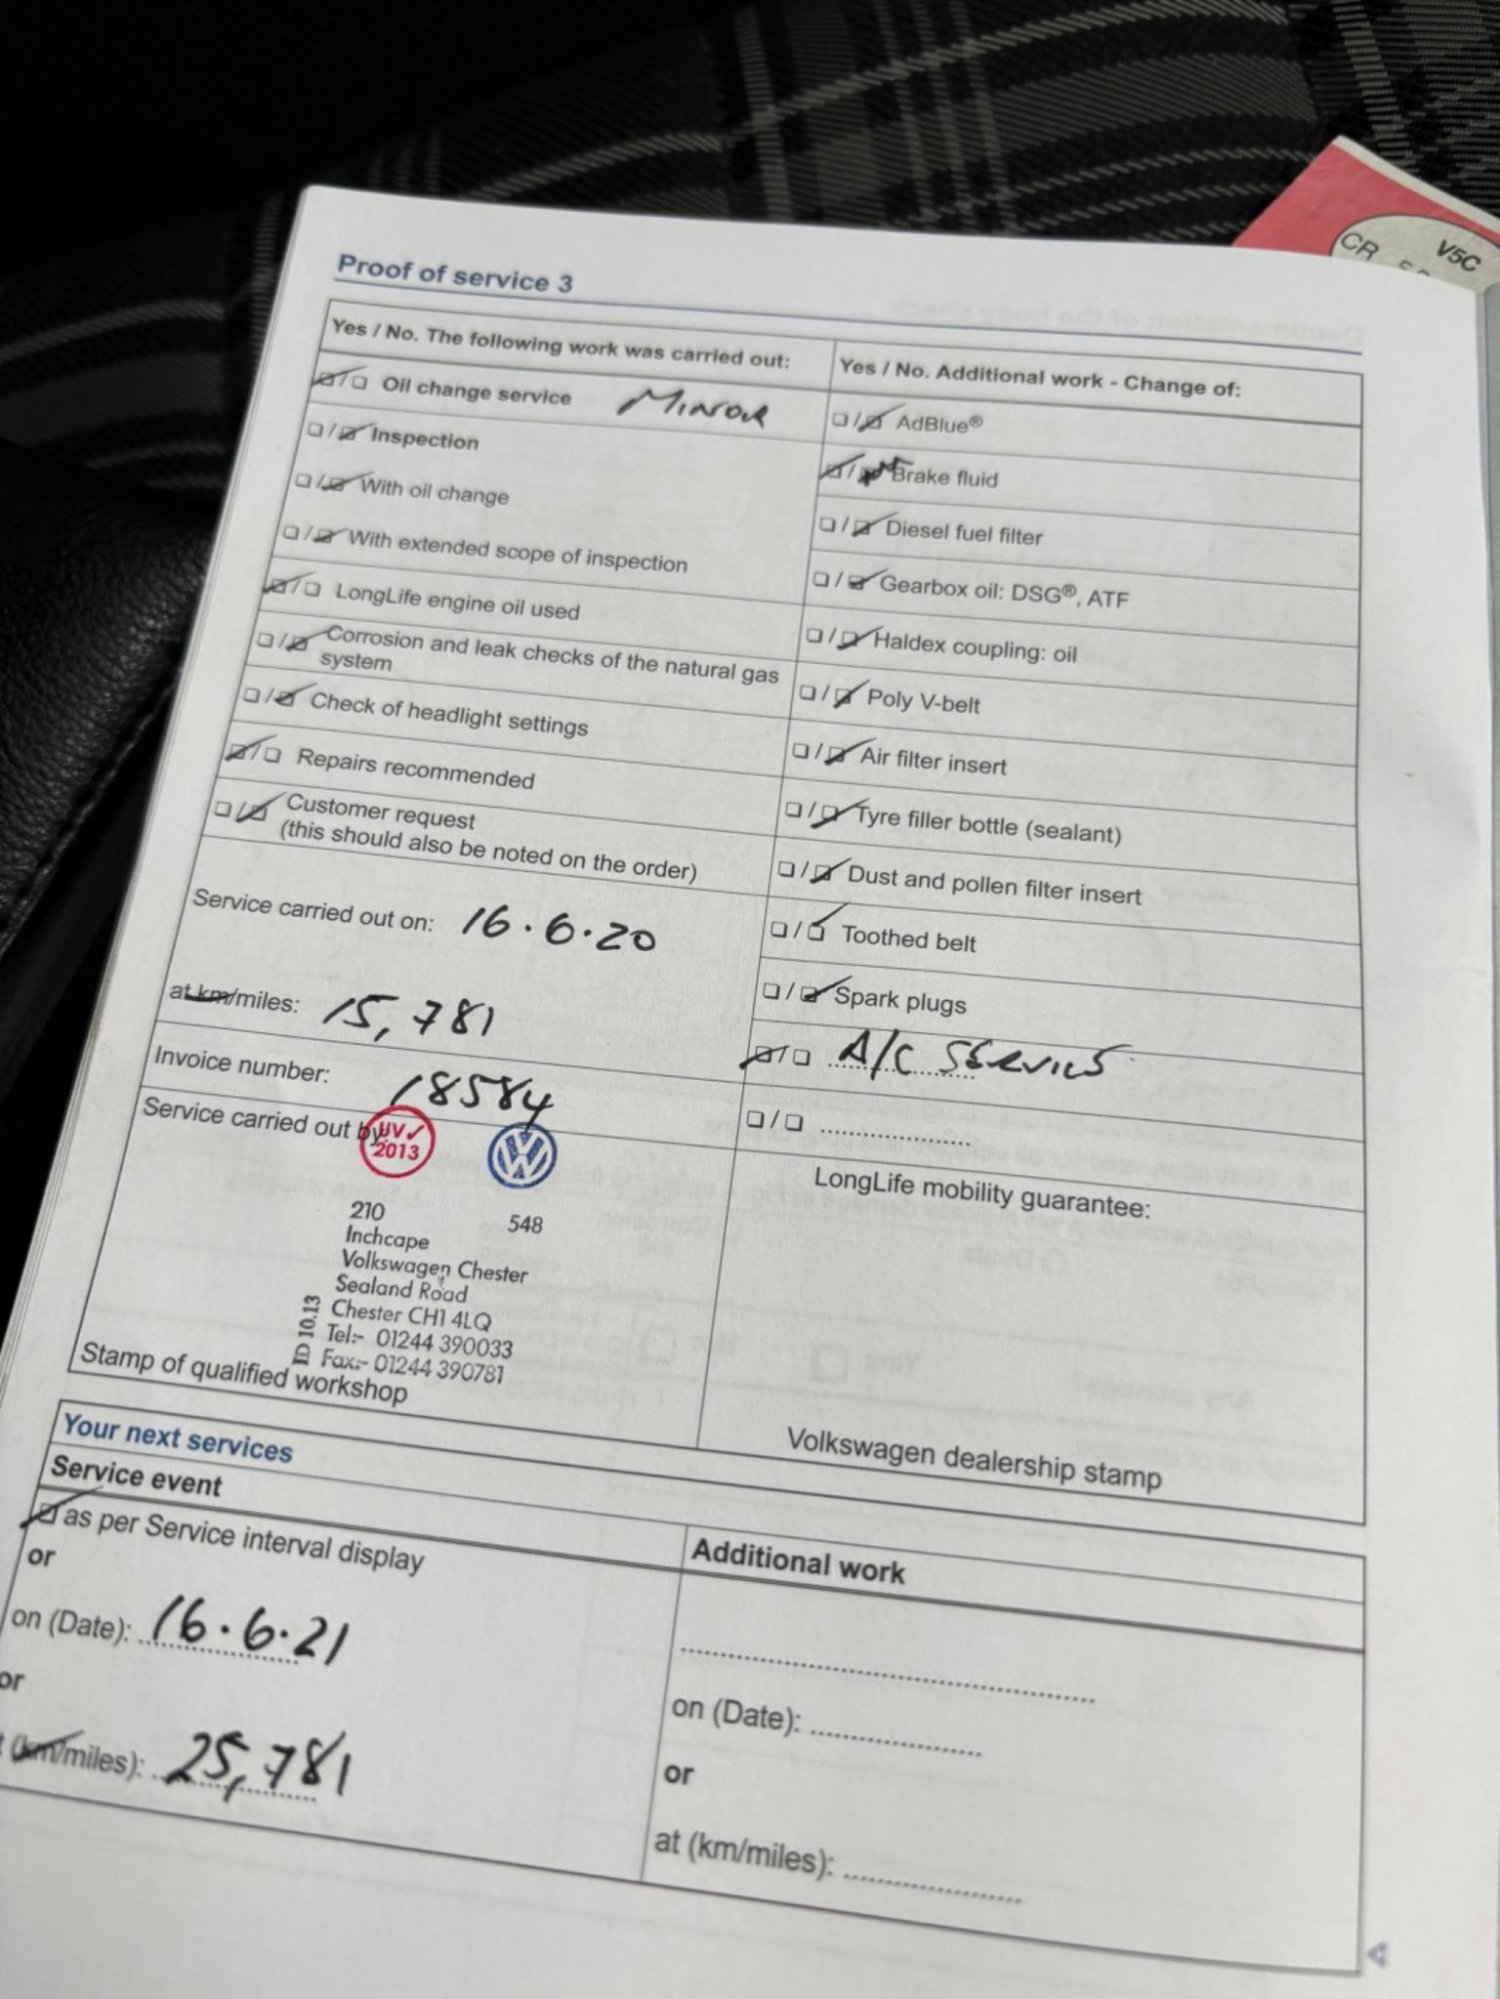 V5C
CR
Proof of service 3
Yes / No. The following work was carried out:
☑/☐ Oil change service MINOR
☐/☑ Inspection
☐/☑ With oil change
☐/☑ With extended scope of inspection
☑/☐ LongLife engine oil used
☐/☑ Corrosion and leak checks of the natural gas
system
☐/☑ Check of headlight settings
☑/☐ Repairs recommended
☐/☑ Customer request
(this should also be noted on the order)
Service carried out on: 16.6.20
at km/miles: 15,781
Invoice number: 18584
Service carried out by:
UV✓
2013
210
548
Inchcape
Volkswagen Chester
Sealand Road
Chester CH1 4LQ
Tel:- 01244 390033
Fax:- 01244 390781
ID 10.13
Stamp of qualified workshop
Yes / No. Additional work - Change of:
☐/☑ AdBlue®
☑/☐ Brake fluid
☐/☑ Diesel fuel filter
☐/☑ Gearbox oil: DSG®, ATF
☐/☑ Haldex coupling: oil
☐/☑ Poly V-belt
☐/☑ Air filter insert
☐/☑ Tyre filler bottle (sealant)
☐/☑ Dust and pollen filter insert
☐/☑ Toothed belt
☐/☑ Spark plugs
☑/☐ A/C SERVICE
☐/☐ ....................
LongLife mobility guarantee:
Volkswagen dealership stamp
Your next services
Service event
☑ as per Service interval display
or
on (Date): 16.6.21
or
(km/miles): 25,781
Additional work
on (Date): ....................
or
at (km/miles): ....................